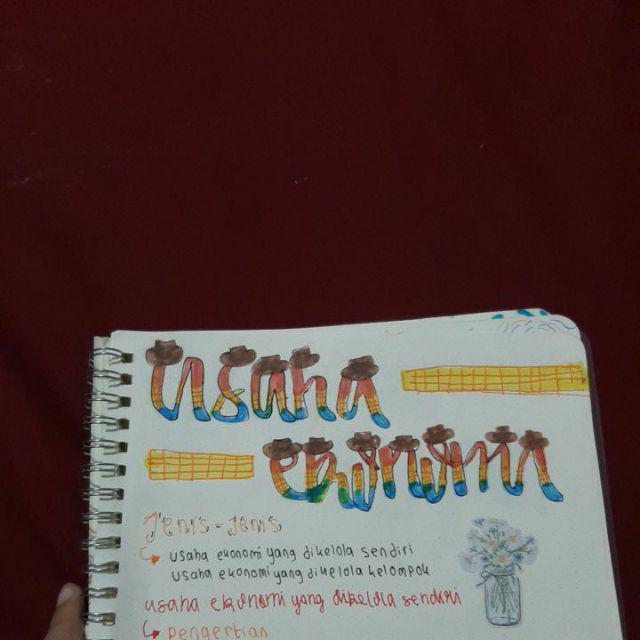 usaha
ekonomi
Jenis-Jenis
usaha ekonomi yang dikelola sendiri
usaha ekonomi yang dikelola kelompok
usaha ekonomi yang dikelola sendiri
Pengertian